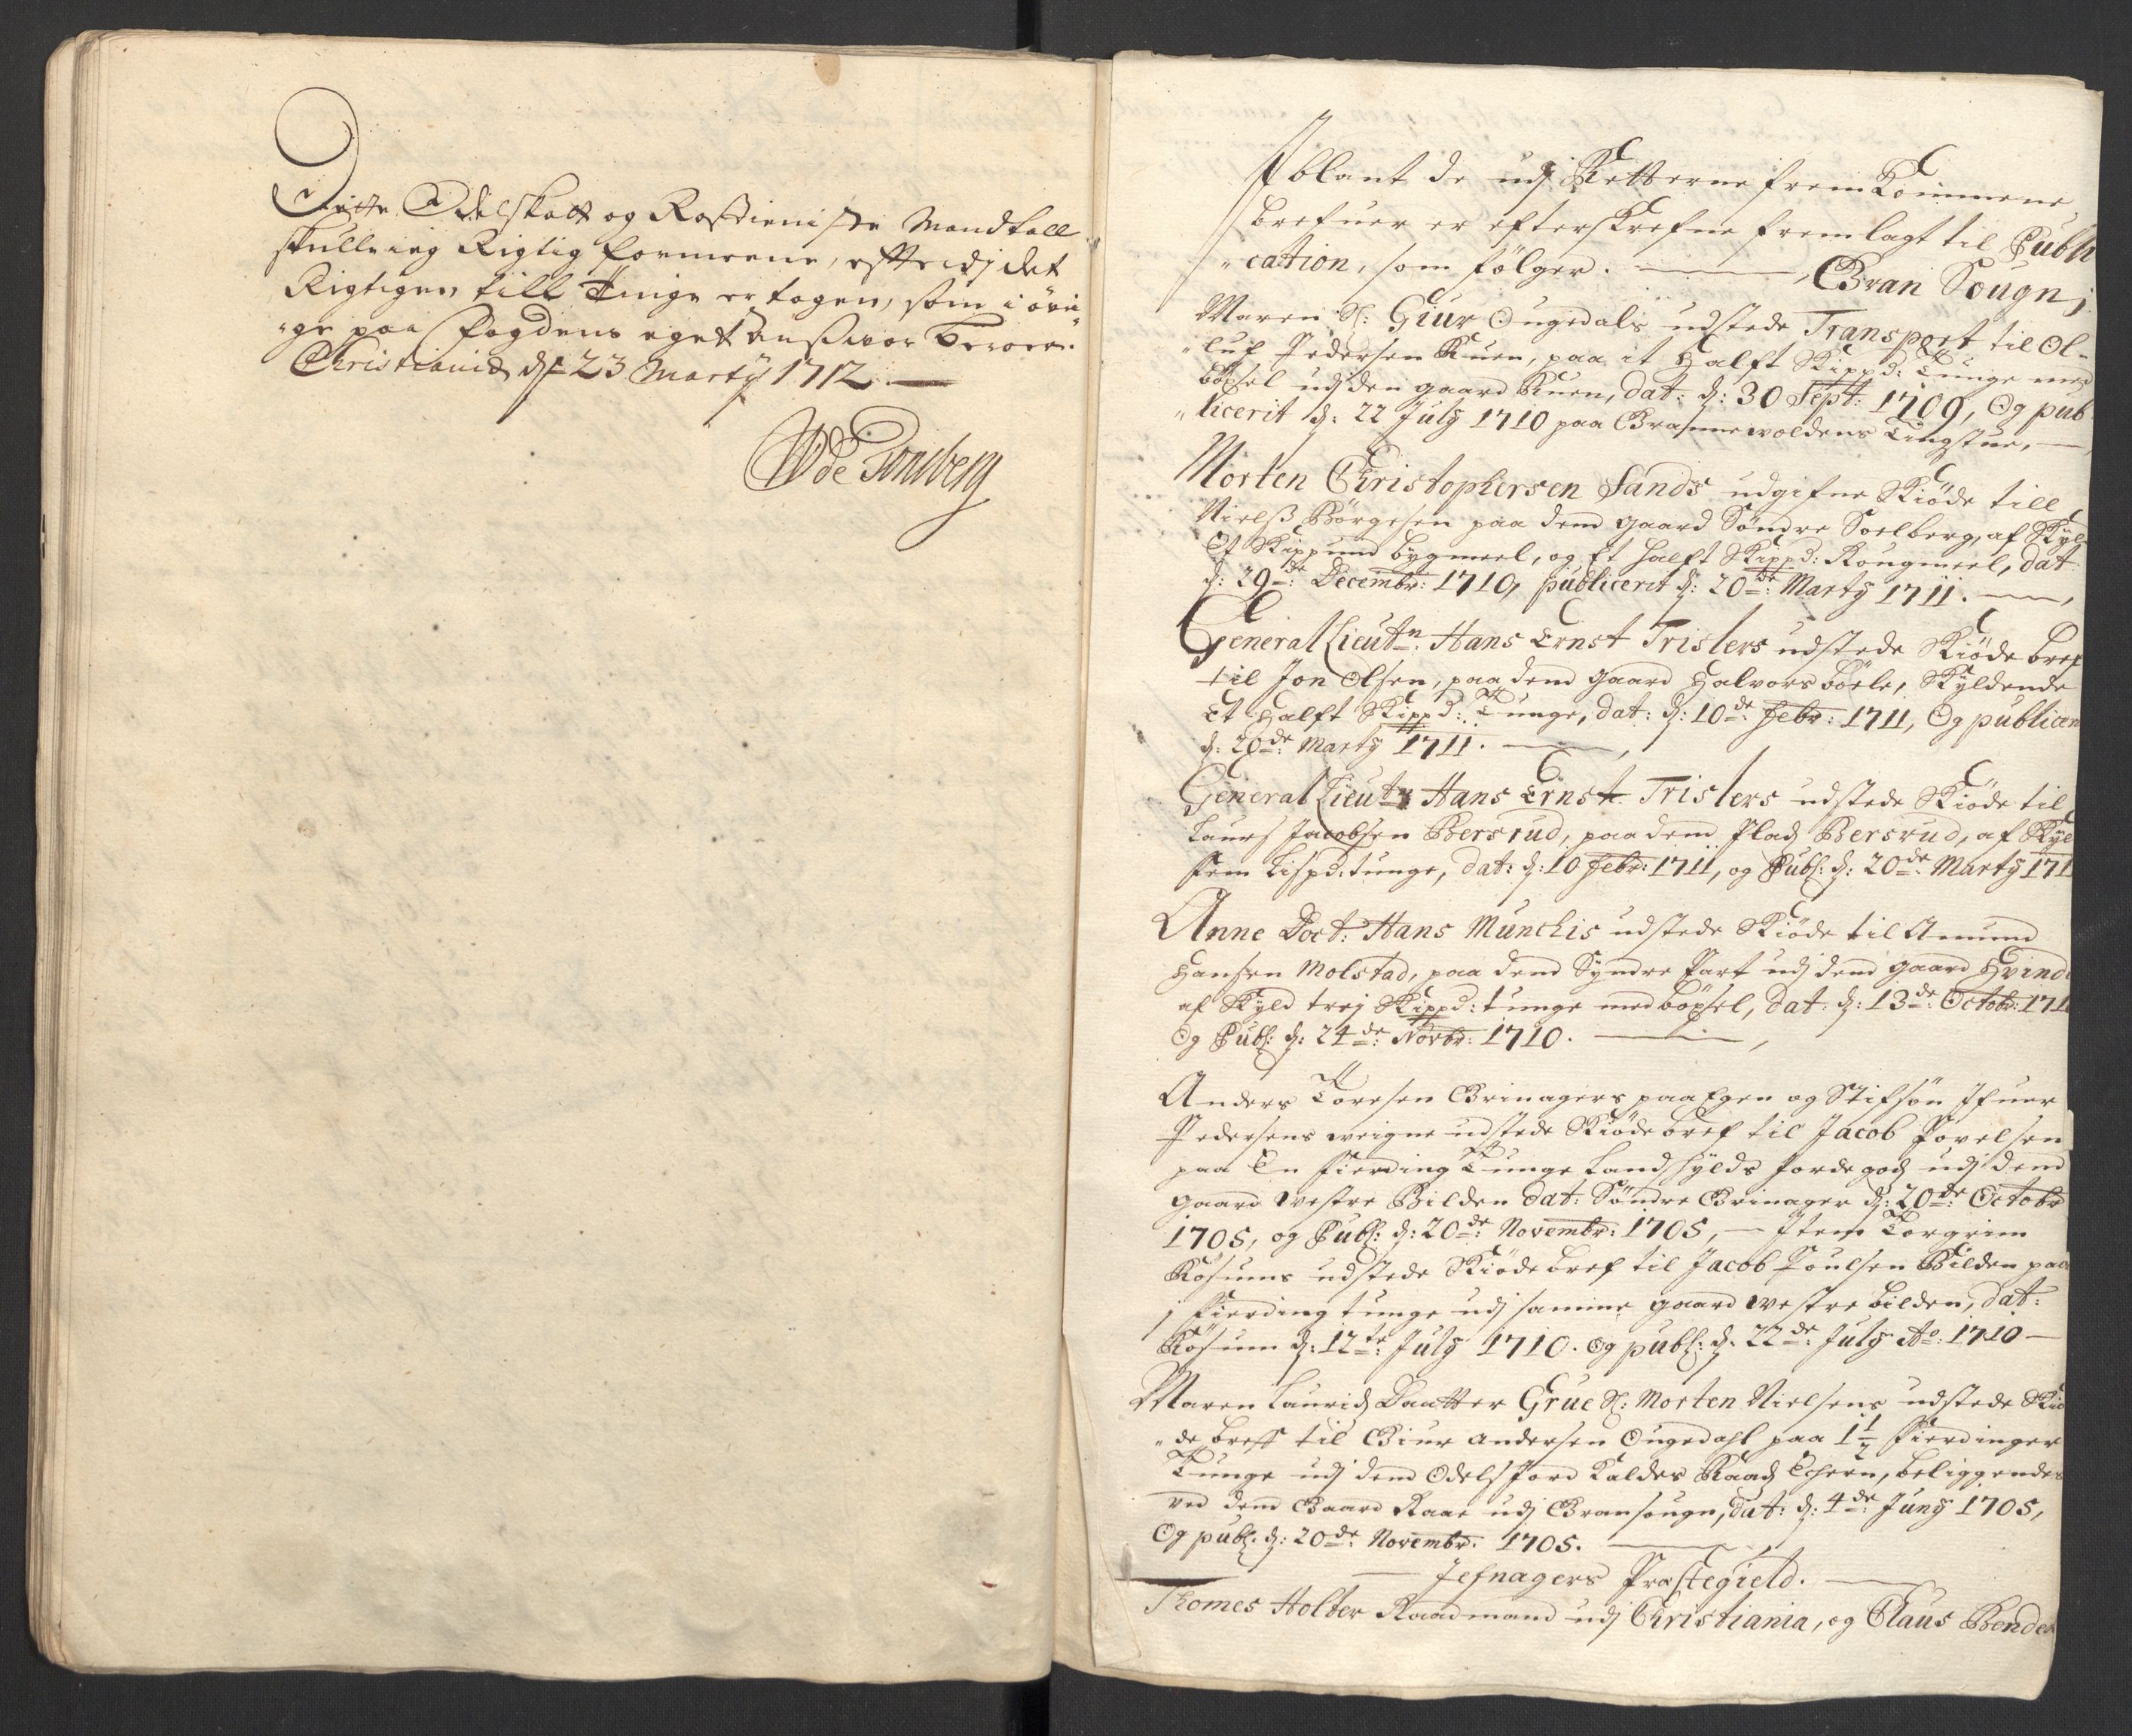 Dette Odelskatt og Rostieniste Mandtall
skulle ieg Rigtig formeene, efftersom det
Rigtigen till Tinge er tagen, som i övri
"ge paa fogdens eget ansvar beroer.
Christiania d: 23 Martÿ 1712.
WdeTonsberg
Iblant de udj Retterne frem Kommene
brefuer er efterskrefne fremlagt til Publi
"cation, som fölger. Bran Sougn;
Maren Sl: Giur Ougedals udstede Transport til Ol-
"luf Pedersen Ruen, paa it halft Skippd: Tunge med
böxsel udj den gaard Ruen, dat: d: 30 Sept: 1709, Og pub
"licerit d: 22 July 1710 paa Brannevoldens Tingstue,
Morten Christophersen Sands udgifne Skiöde till
Nielss Börgesen paa dend gaard Söndre Soelberg, af Skyl
Et Skippund bygmeel, og Et halft Skippd: Rougmeel, dat:
d: 29de: Decembr: 1710, publicerit d: 20de: Marty 1711.
General Lieutn: Hans Ernst Trislers udstede Skiöde bref
til Jon Olsen, paa dend gaard Halvorsböele, Skyldende
Et halft Skippd: Tunge, dat: d: 10de: Febr: 1711, Og publicer
d: 20de: Marty 1711.
General Lieutn Hans Ernst Trislers udstede Skiöde til
Laurs Jacobsen Bersrud, paa dend Plads Bersrud, af Skyl
fem Lispd: tunge, dat: d: 10 Febr: 1711, og Publ: d: 20de: Marty 171
Anne Doct: Hans Munchis udstede Skiöde til Amund
Hansen Molstad, paa dend Syndre Part udj dend gaard Hvind
af Skyld trej Skippd: tunge med böxsel, dat: d: 13de: Octobr: 171
Og Publ: d: 24de: Novbr: 1710.
Anders Toresen Brinagers paa Egen og Stifsön Ifuer
Pedersens weigne udstede Skiöde bref til Jacob Povelsen
paa En fierding Tunge Landskylds Jordegods udj dend
gaard Westre Bilden dat: Söndre Brinager d: 20de: Octobr
1705, og Publ: d: 20de: Novembr: 1705, Item Torgrim
Rösums udstede Skiöde bref til Jacob Poulsen Bilden paa
j fierding tunge udj samme gaard westre bilden, dat:
Rösum d: 12te: July 1710. Og publ: d: 22de: July Ao: 1710
Maren Laurids Daatter Grue Sl: Morten Nielsens udstede Skiö
"de breff til Giur Andersen Ougedahl paa 1 1/2 fierdinger
Tunge udj dend Odels Jord Kaldes Raads Echern, beliggendes
ved dend Gaard Raae udj Bransougn, dat: d: 4de: Juny 1705,
Og publ: d: 20de: Novembr: 1705.
Jefnagers Præstegield.
Thomes Holter Raadmand udj Christiania, og Claus Bender